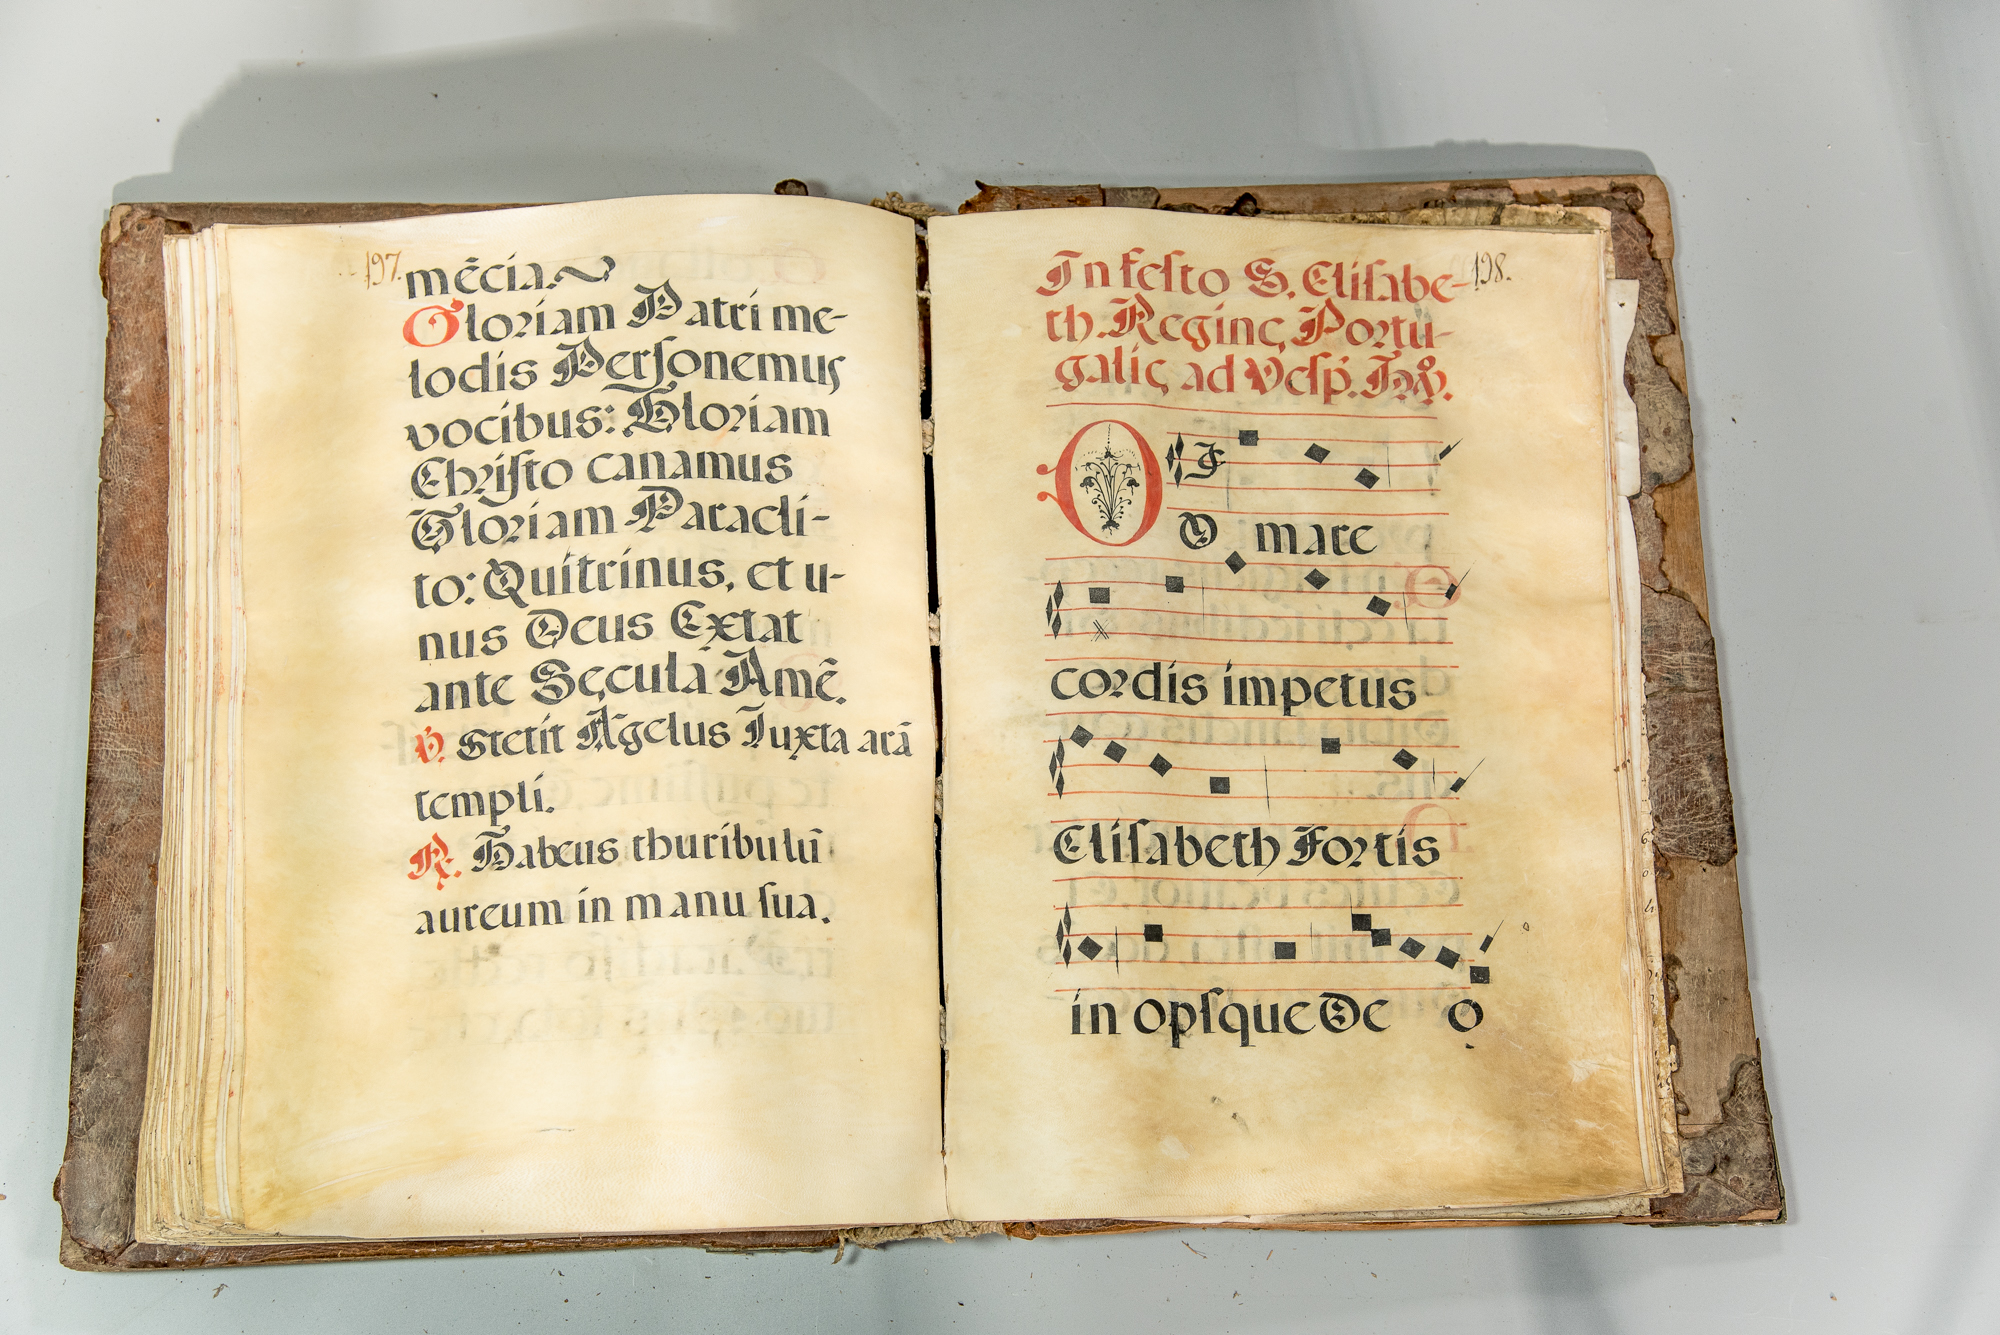 197.
mēcia.
Gloriam Patri me-
lodis Perſonemus
vocibus: Gloriam
Chriſto canamus
Gloriam Paracli-
to: Quitrinus, et u-
nus Deus Extat
ante Sęcula Amē.
V. Stetit Āgelus Iuxta arā
templi.
R. Habeus thuribulū
aureum in manu ſua.
198.
In feſto S. Eliſabe-
th. Reginę Portu-
galię ad Veſp.
O
D mare
cordis impetus
Eliſabeth Fortis
in opſque De o